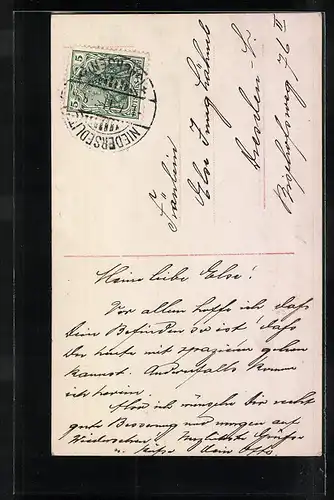 5
5
NIEDERSEDLITZ
Fräulein
Else Junghähnel
Dresden-F.
Bischofsweg 76 II
Meine liebe Else!
Vor allen hoffe ich daß
Dein Befinden so ist daß
Du heute mit spazieren gehen
kannst. Andernfalls komme
ich herein.
Also ich wünsche Dir recht
gute Besserung und morgen auf
Wiedersehen. Grüße
u. Küsse Dein Otto